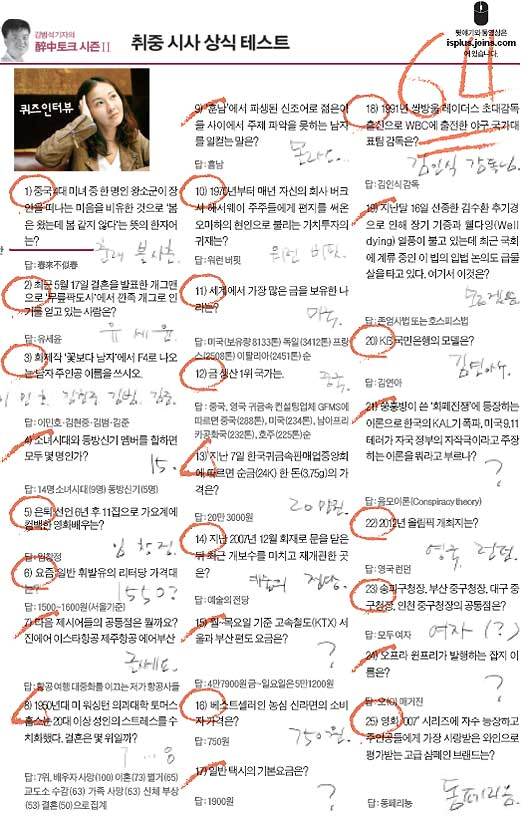 김범석기자의
醉中토크 시즌Ⅱ
취중 시사 상식 테스트
뒷얘기와 동영상은
isplus.joins.com
에 있습니다.
64
퀴즈인터뷰
1) 중국 4대 미녀 중 한 명인 왕소군이 장
안을 떠나는 마음을 비유한 것으로 '봄
은 왔는데 봄 같지 않다'는 뜻의 한자어
는?
춘래 불사춘
답 : 春來不似春
2) 최근 5월 17일 결혼을 발표한 개그맨
으로 '무릎팍도사'에서 깐족 개그로 인
기를 얻고 있는 사람은?
유세윤
답 : 유세윤
3) 화제작 '꽃보다 남자'에서 F4로 나오
는 남자 주인공 이름을 쓰시오.
이민호 김현중 김범 김준
답 : 이민호·김현중·김범·김준
4) 소녀시대와 동방신기 멤버를 합하면
모두 몇 명인가?
15.
답 : 14명 소녀시대(9명) 동방신기(5명)
5) 은퇴 선언 6년 후 11집으로 가요계에
컴백한 영화배우는?
임창정
답 : 임창정
6) 요즘 일반 휘발유의 리터당 가격대
는?
1550?
답 : 1500~1600원(서울기준)
7) 다음 제시어들의 공통점은 뭘까요?
진에어 이스타항공 제주항공 에어부산
글쎄요
답 : 항공 여행 대중화를 이끄는 저가 항공사들
8) 1950년대 미 워싱턴 의과대학 토머스
홈스는 20대 이상 성인의 스트레스를 수
치화했다. 결혼은 몇 위일까?
답 : 7위, 배우자 사망(100) 이혼(73) 별거(65)
교도소 수감(63) 가족 사망(63) 신체 부상
(53) 결혼(50)으로 집계
9) '훈남'에서 파생된 신조어로 젊은이
들 사이에서 주제 파악을 못하는 남자
를 일컫는 말은?
답 : 흠남
10) 1970년부터 매년 자신의 회사 버크
셔 해서웨이 주주들에게 편지를 써온
오마하의 현인으로 불리는 가치투자의
귀재는?
워런 버핏
답 : 워런 버핏
11) 세계에서 가장 많은 금을 보유한 나
라는?
미국
답 : 미국(보유량 8133톤) 독일(3412톤) 프랑
스(2508톤) 이탈리아(2451톤) 순
12) 금 생산 1위 국가는.
중국
답 : 중국, 영국 귀금속 컨설팅업체 GFMS에
따르면 중국(288톤), 미국(234톤), 남아프리
카공화국(232톤), 호주(225톤)순
13) 지난 7일 한국귀금속판매업중앙회
에 따르면 순금(24K) 한 돈(3.75g)의 가
격은?
20만원
답 : 20만 3000원
14) 지난 2007년 12월 화재로 문을 닫은
뒤 최근 개보수를 마치고 재개관한 곳
은?
예술의 전당
답 : 예술의전당
15) 월~목요일 기준 고속철도(KTX) 서
울과 부산 편도 요금은?
?
답 : 4만7900원 금~일요일은 5만1200원
16) 베스트셀러인 농심 신라면의 소비
자 가격은?
750원.
답 : 750원
17) 일반 택시의 기본요금은?
?
답 : 1900원
18) 1991년 쌍방울 레이더스 초대감독
출신으로 WBC에 출전한 야구 국가대
표팀 감독은?
김인식 감독님.
답 : 김인식 감독
19) 지난달 16일 선종한 김수환 추기경
으로 인해 장기 기증과 웰다잉(Well
dying) 열풍이 불고 있는데 최근 국회
에 계류 중인 이 법의 입법 논의도 급물
살을 타고 있다. 여기서 이것은?
모르겠음
답 : 존엄사법 또는 호스피스법
20) KB국민은행의 모델은?
김연아
답 : 김연아
21) 쑹훙빙이 쓴 '화폐전쟁'에 등장하는
이론으로 한국의 KAL기 폭파, 미국 9.11
테러가 자국 정부의 자작극이라고 주장
하는 이론을 뭐라고 부르나?
?
답 : 음모이론(Conspiracy theory)
22) 2012년 올림픽 개최지는?
영국 런던
답 : 영국 런던
23) 송파구청장, 부산 중구청장, 대구 중
구청장, 인천 중구청장의 공통점은?
여자(?)
답 : 모두 여자
24) 오프라 윈프리가 발행하는 잡지 이
름은?
?
답 : 오(O) 매거진
25) 영화 '007' 시리즈에 자주 등장하고
주인공들에게 가장 사랑받은 와인으로
평가받는 고급 샴페인 브랜드는?
돔페리뇽
답 : 돔페리뇽